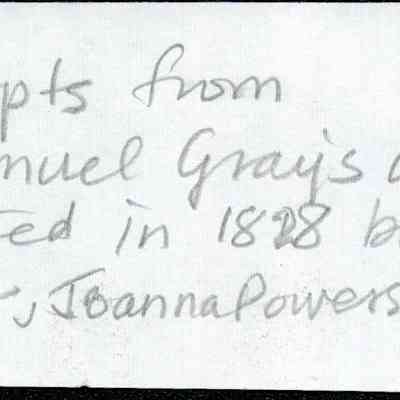 pts from
nuel Gray's
ted in 1828 b
, Joanna Powers